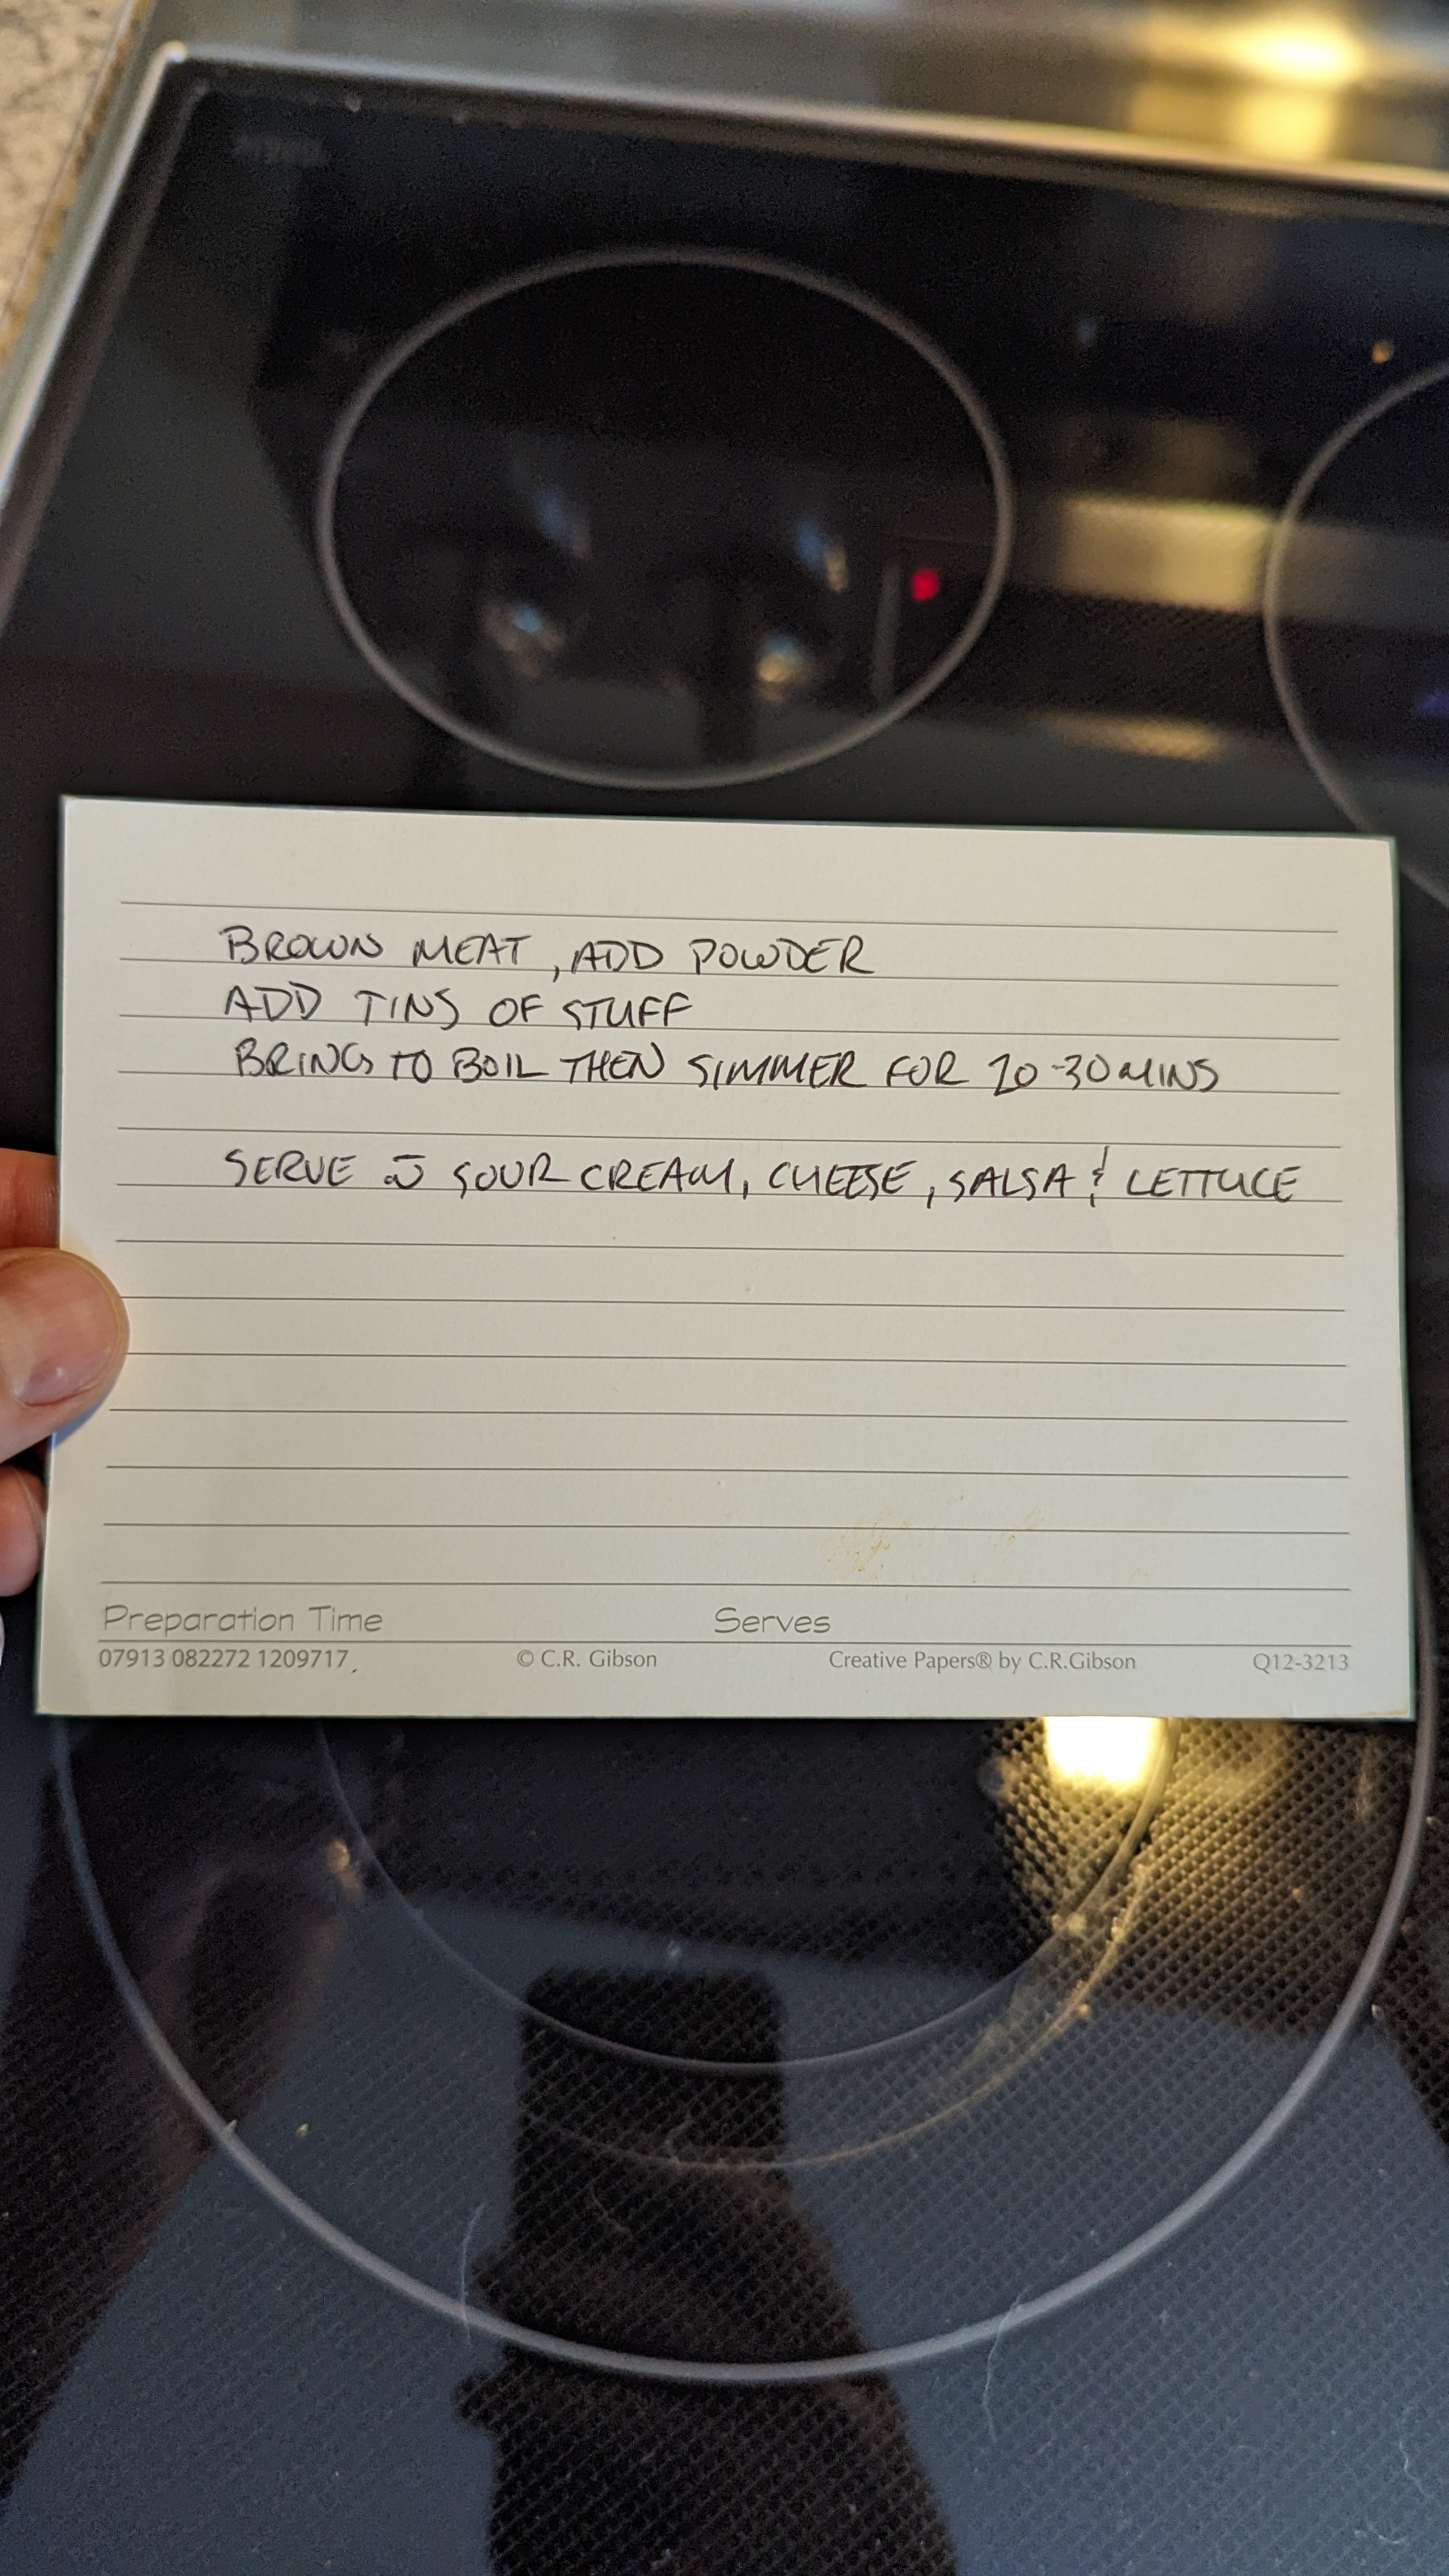 BROWN MEAT, ADD POWDER
ADD TINS OF STUFF
BRING TO BOIL THEN SIMMER FOR 20-30 MINS
SERVE w̅ SOUR CREAM, CHEESE, SALSA & LETTUCE
Preparation Time Serves
07913 082272 1209717 © C.R. Gibson Creative Papers® by C.R.Gibson Q12-3213